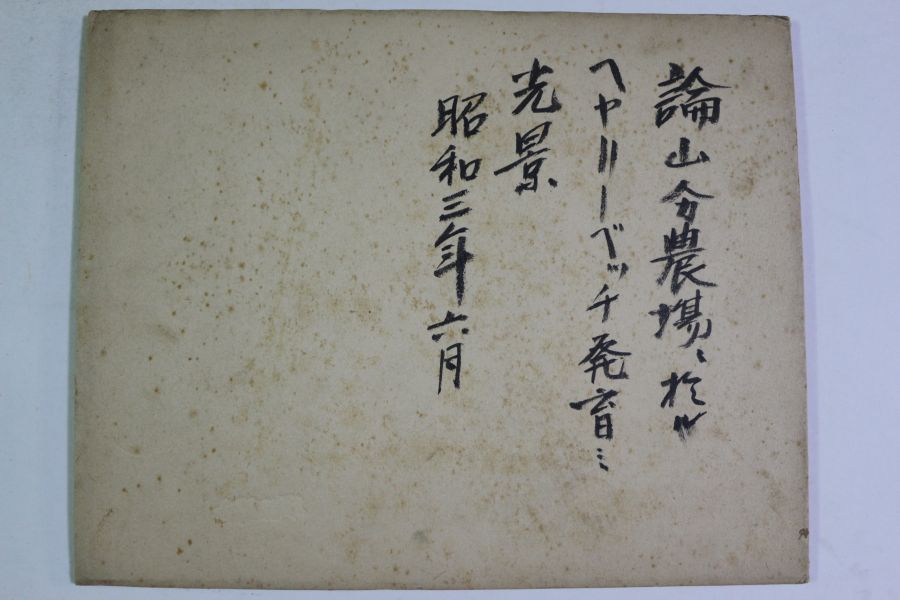 論山分農場ニ於ル
ヘヤリーベッチ発育ノ
光景
昭和三年六月